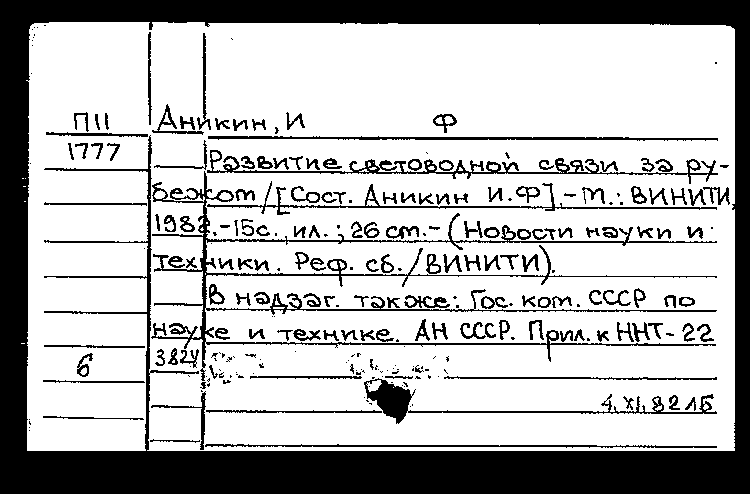 П11 Аникин, И Ф
1777 Развитие световодной связи за ру-
бежом / [Сост. Аникин И.Ф]. - М.: ВИНИТИ,
1982. - 15с., ил.; 26 см. - (Новости науки и
техники. Реф. сб. / ВИНИТИ).
В надзаг. также: Гос. ком. СССР по
науке и технике. АН СССР. Прил. к ННТ-22
6
4.XI.82